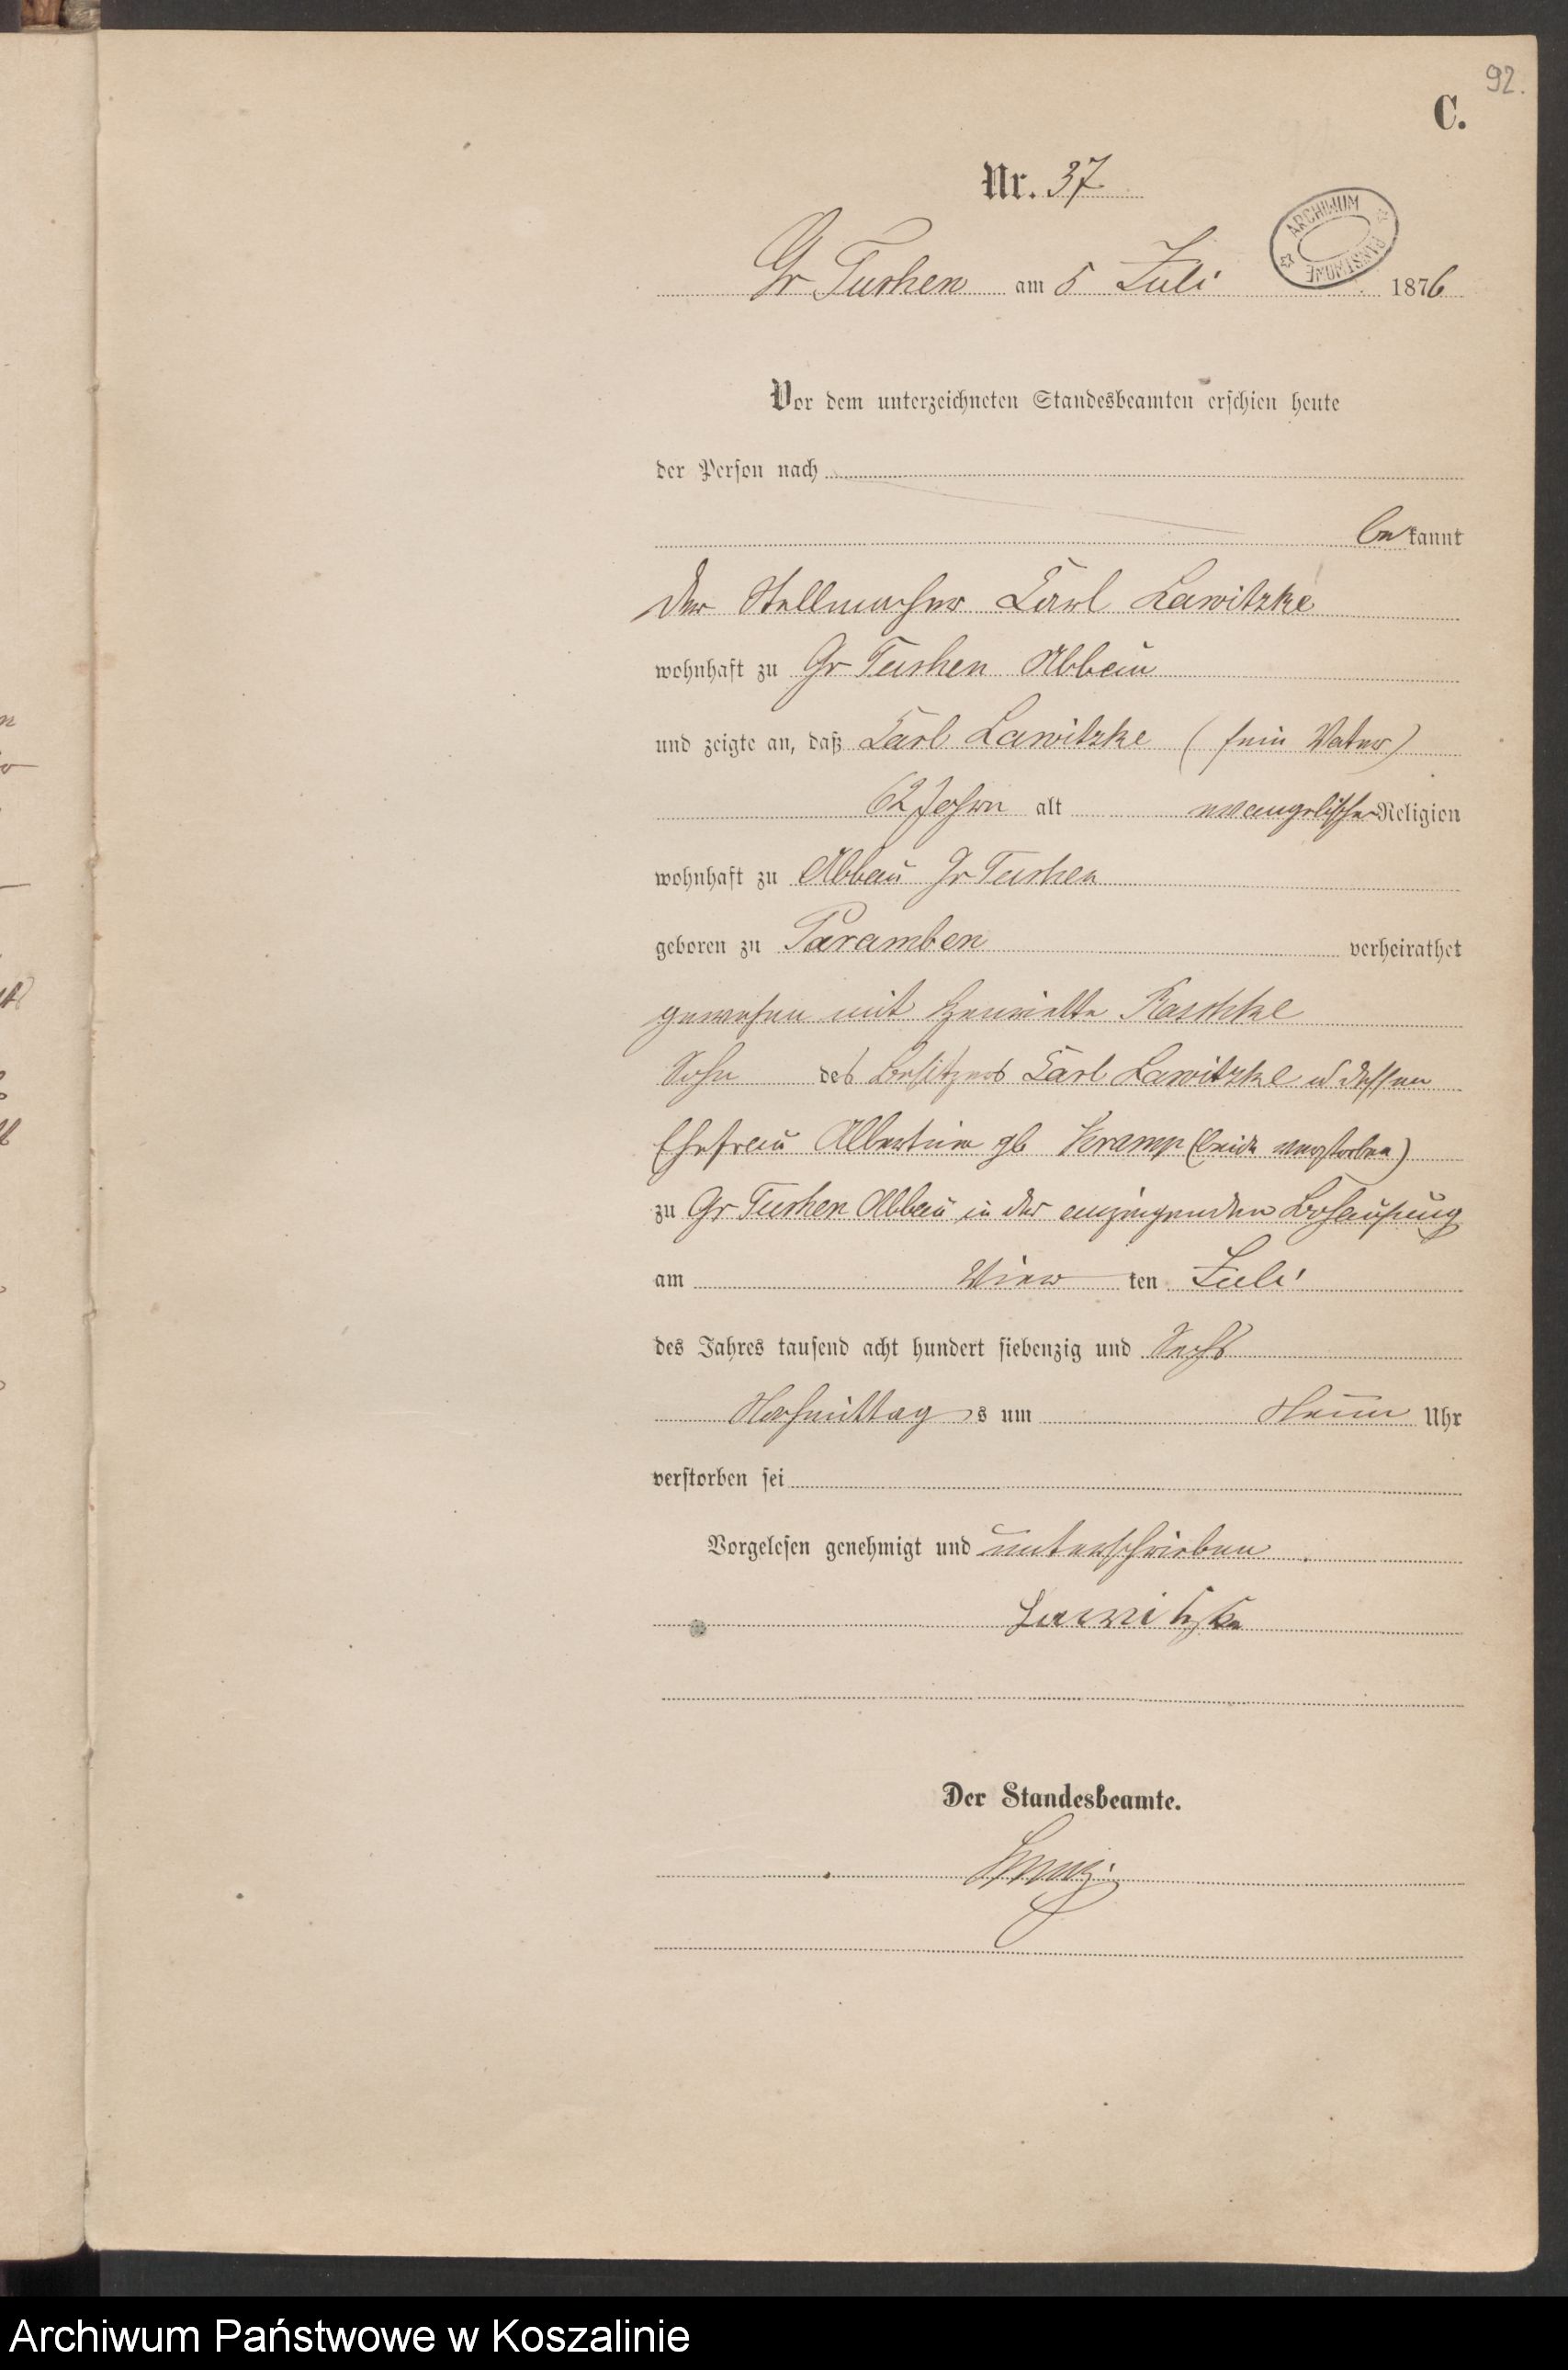 92.
C.
Nr. 37
ARCHIWUM PAŃSTWOWE
Gr Tuchen am 5 Juli 1876
Vor dem unterzeichneten Standesbeamten erschien heute
der Person nach
bekannt
der Stellmacher Carl Lawitzke
wohnhaft zu Gr Tuchen Abbau
und zeigte an, daß Carl Lawitzke (sein Vater)
62 Jahre alt evangelischer Religion
wohnhaft zu Abbau Gr Tuchen
geboren zu Paramben verheirathet
gewesen mit Henriette Raschke
Sohn des Besitzers Carl Lawitzke u dessen
Ehefrau Albertine gb Kramp (beide verstorben)
zu Gr Tuchen Abbau in der Behausung
am Vier ten Juli
des Jahres tausend acht hundert siebenzig und Sechs
Nachmittag s um Neun Uhr
verstorben sei
Vorgelesen genehmigt und unterschrieben
Lawitzke
Der Standesbeamte.
Archiwum Państwowe w Koszalinie